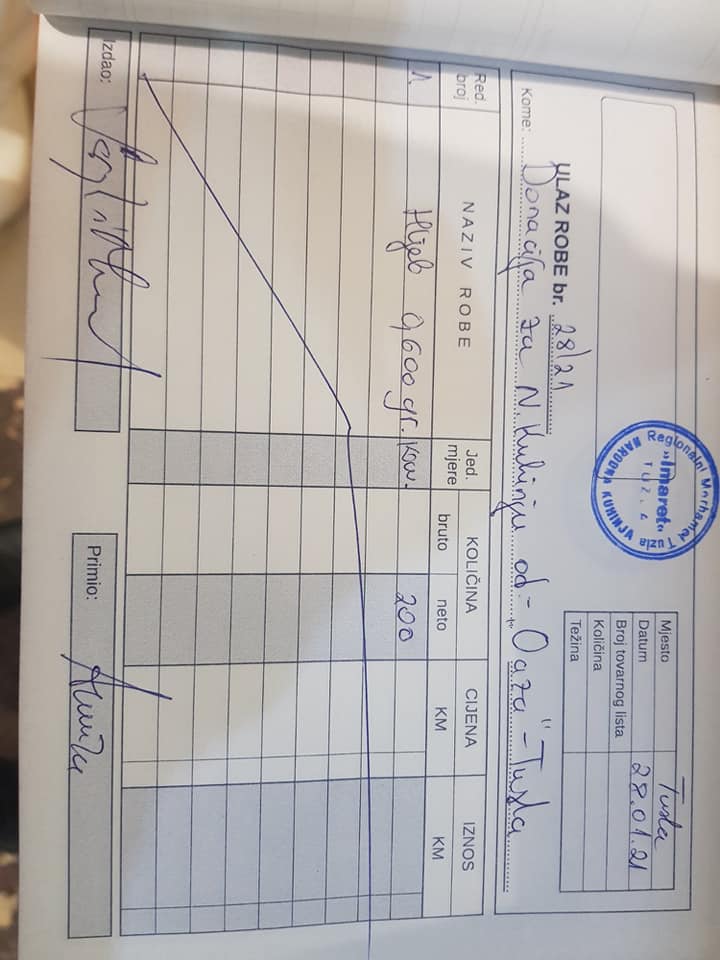 Regionalni Merhamet Tuzla
»Imaret«
TUZLA
NARODNA KUHINJA
Mjesto Tuzla
Datum 28.01.21
Broj tovarnog lista
Količina
Težina
ULAZ ROBE br. 28/21
Kome: Donacija za N. Kuhinju od - "Oaza" - Tuzla
Red. broj
NAZIV ROBE
Jed. mjere
KOLIČINA
bruto
neto
CIJENA
KM
IZNOS
KM
1 Hljeb 0,600 gr. kom. 200
Izdao:
Primio: